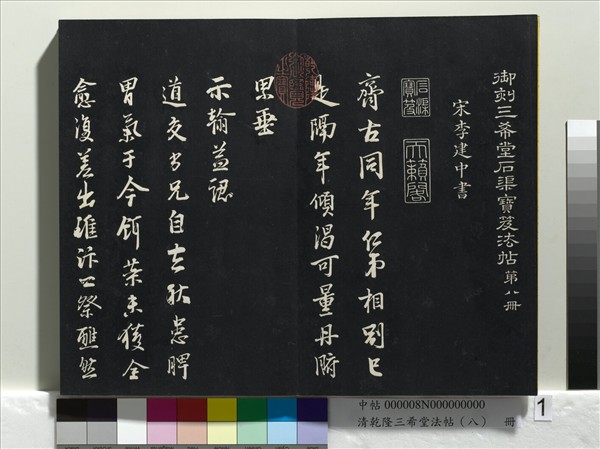 御刻三希堂石渠寶笈法帖第八冊
宋李建中書
石渠寶笈
天籟閣
齊古同年仁弟相別已
是隔年傾渴可量丹䑛
思垂
示翰益認
道交甚兄自至秋患脾
胃氣于今餌藥未獲全
愈復差出雖汴公祭醮然
中帖 000008N000000000
清乾隆三希堂法帖(八) 冊
1